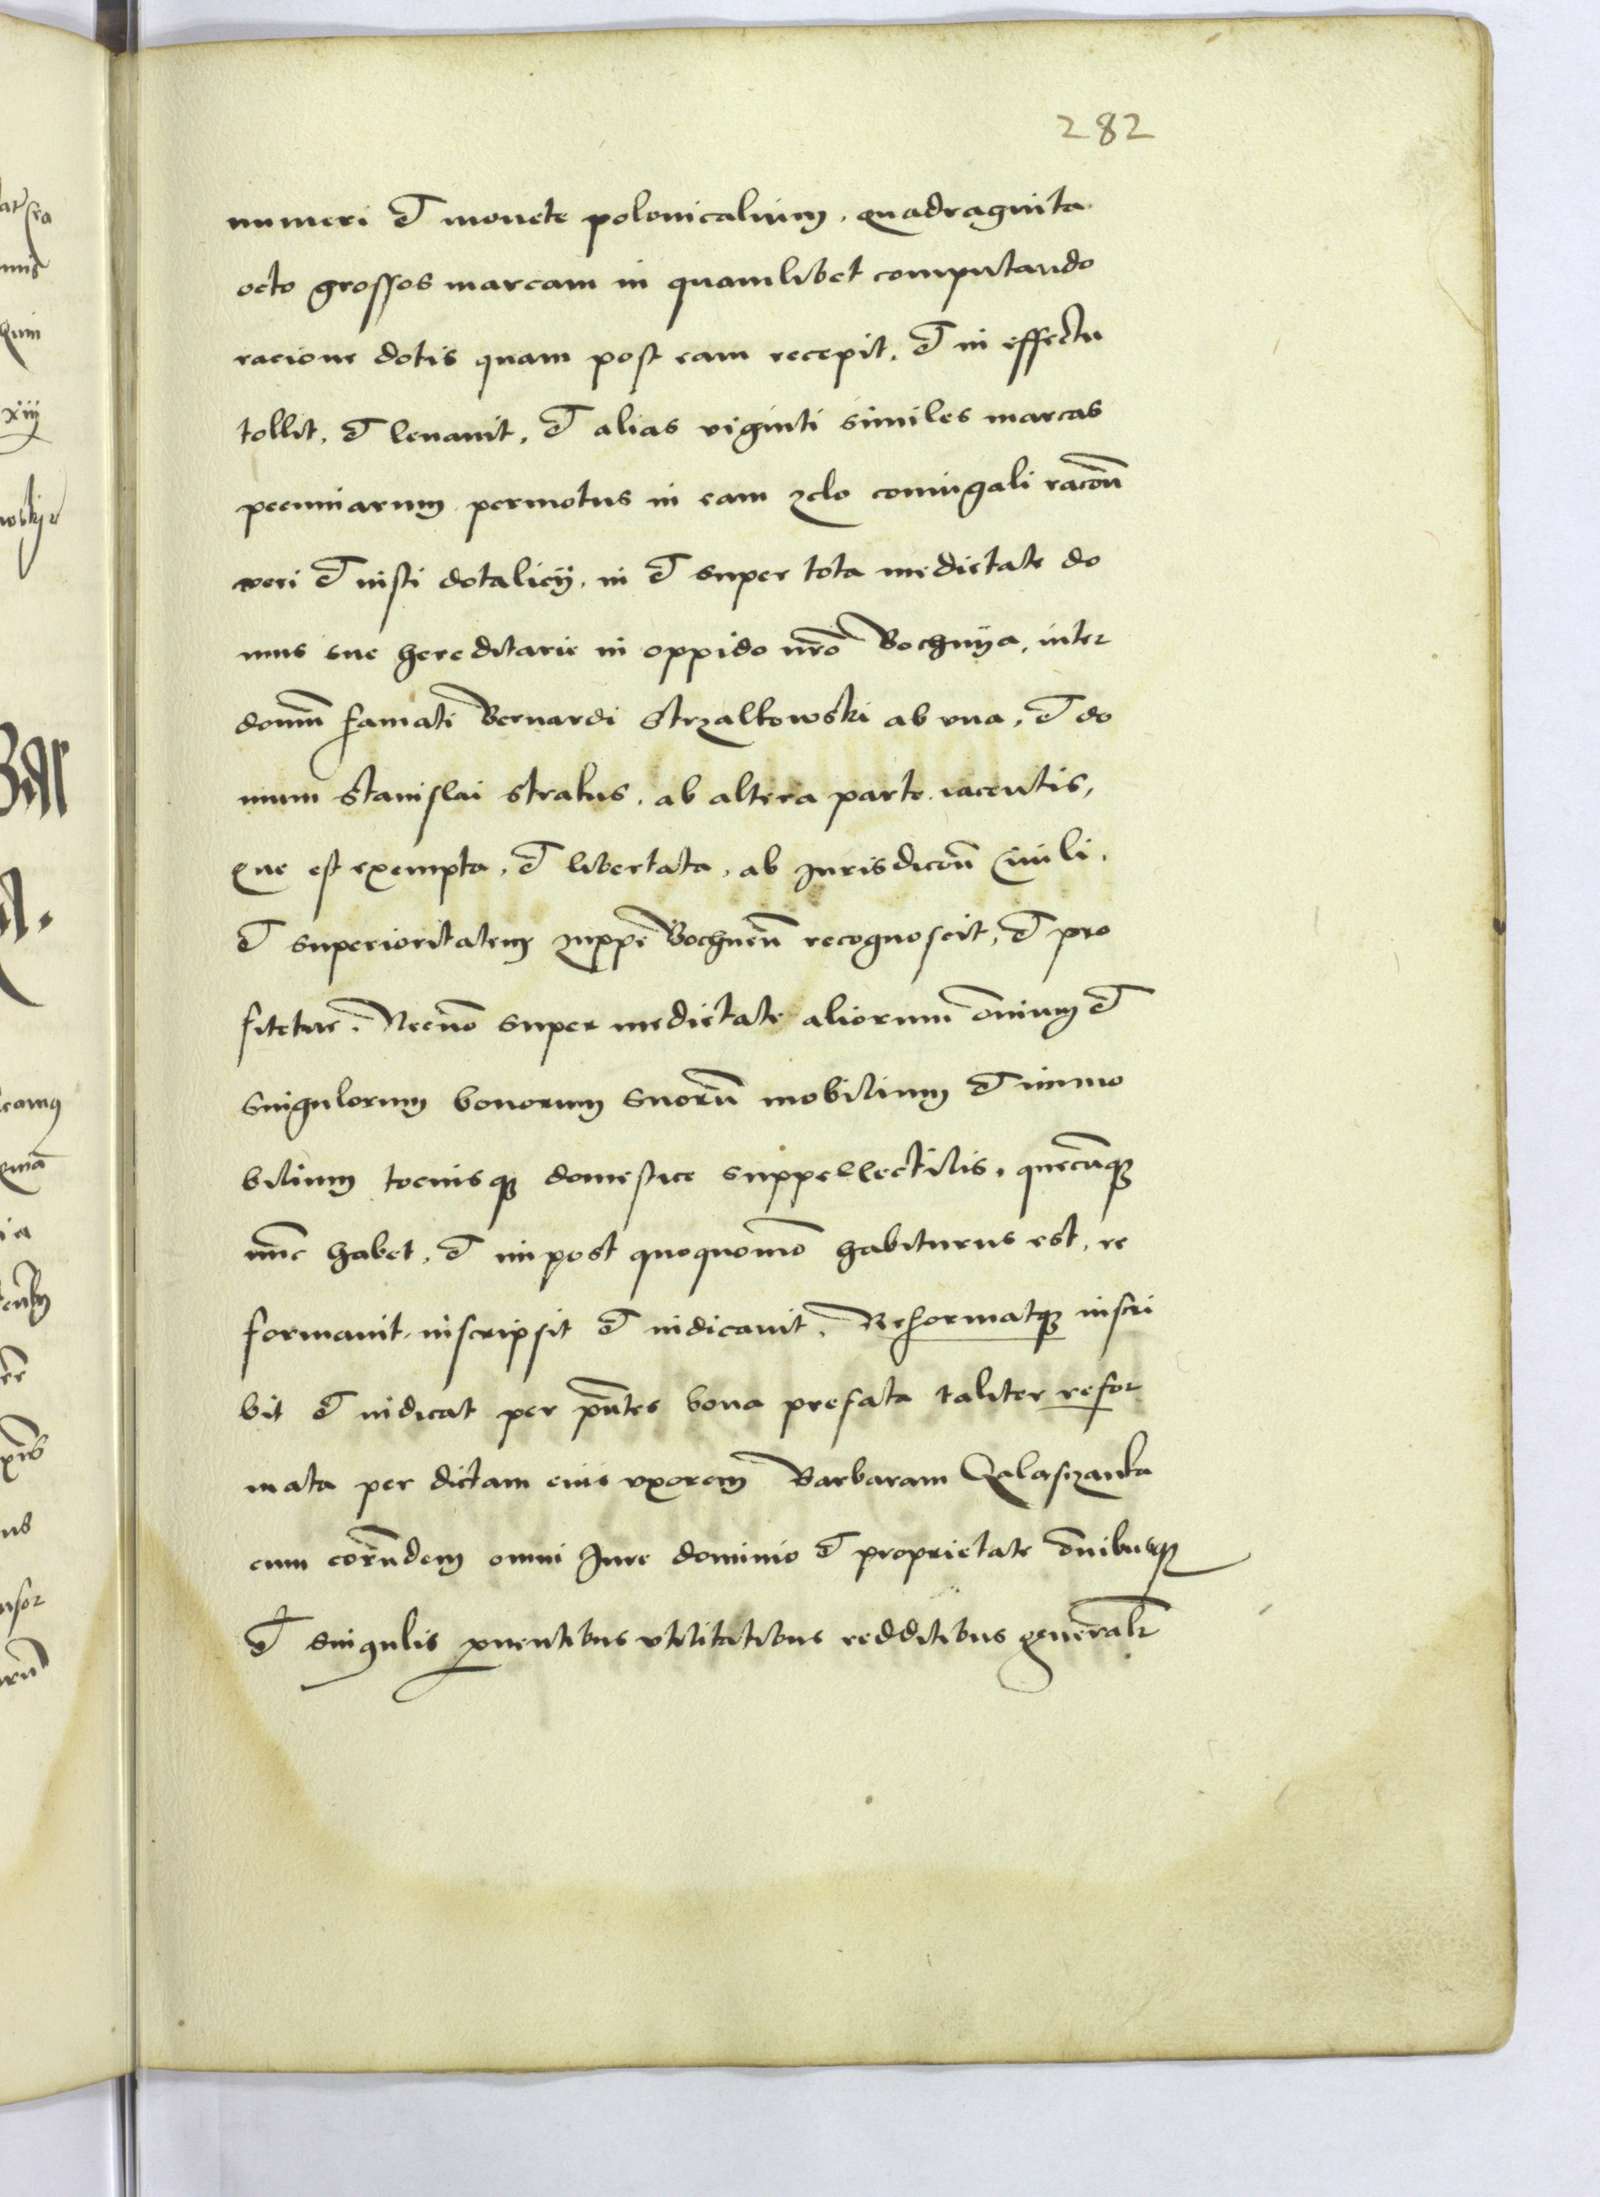 282
numeri et monete polonicalium, quadraginta
octo grossos marcam in quamlibet computando
racione dotis quam post eam recepit, et in effectu
tollit, et levavit, et alias viginti similes marcas
pecuniarum permotus in eam zelo coniugali racōn̄
veri et iusti dotalicij, in et super tota medietate do
mus sue hereditarie in oppido nr̄o Bochnija, inter
domū famati Bernardi Strzalkowski ab una, et do
mum Stanislai Stratus, ab altera parte iacentis,
que est exempta, et libertata, ab Jurisdicōn̄ Ciuili,
et superioritatem zuppe Bochnen̄ recognoscit, et pro
fitetur. Necnō super medietate aliorum ōnium et
singulorum bonorum suorū mobilium et immo
bilium tociusq; domestice suppellectilis, quecūq;
nūc habet, et inpost quoquomō habiturus est, re
formavit, inscripsit et indicavit, Reformatq; inscri
bit et indicat per pn̄tes bona prefata taliter refor
mata per dictam eius uxorem Barbaram Galaszanka
cum eorūdem omni Jure dominio et proprietate ōnibusq;
et singulis pventibus utilitatibus redditibus generalr̄